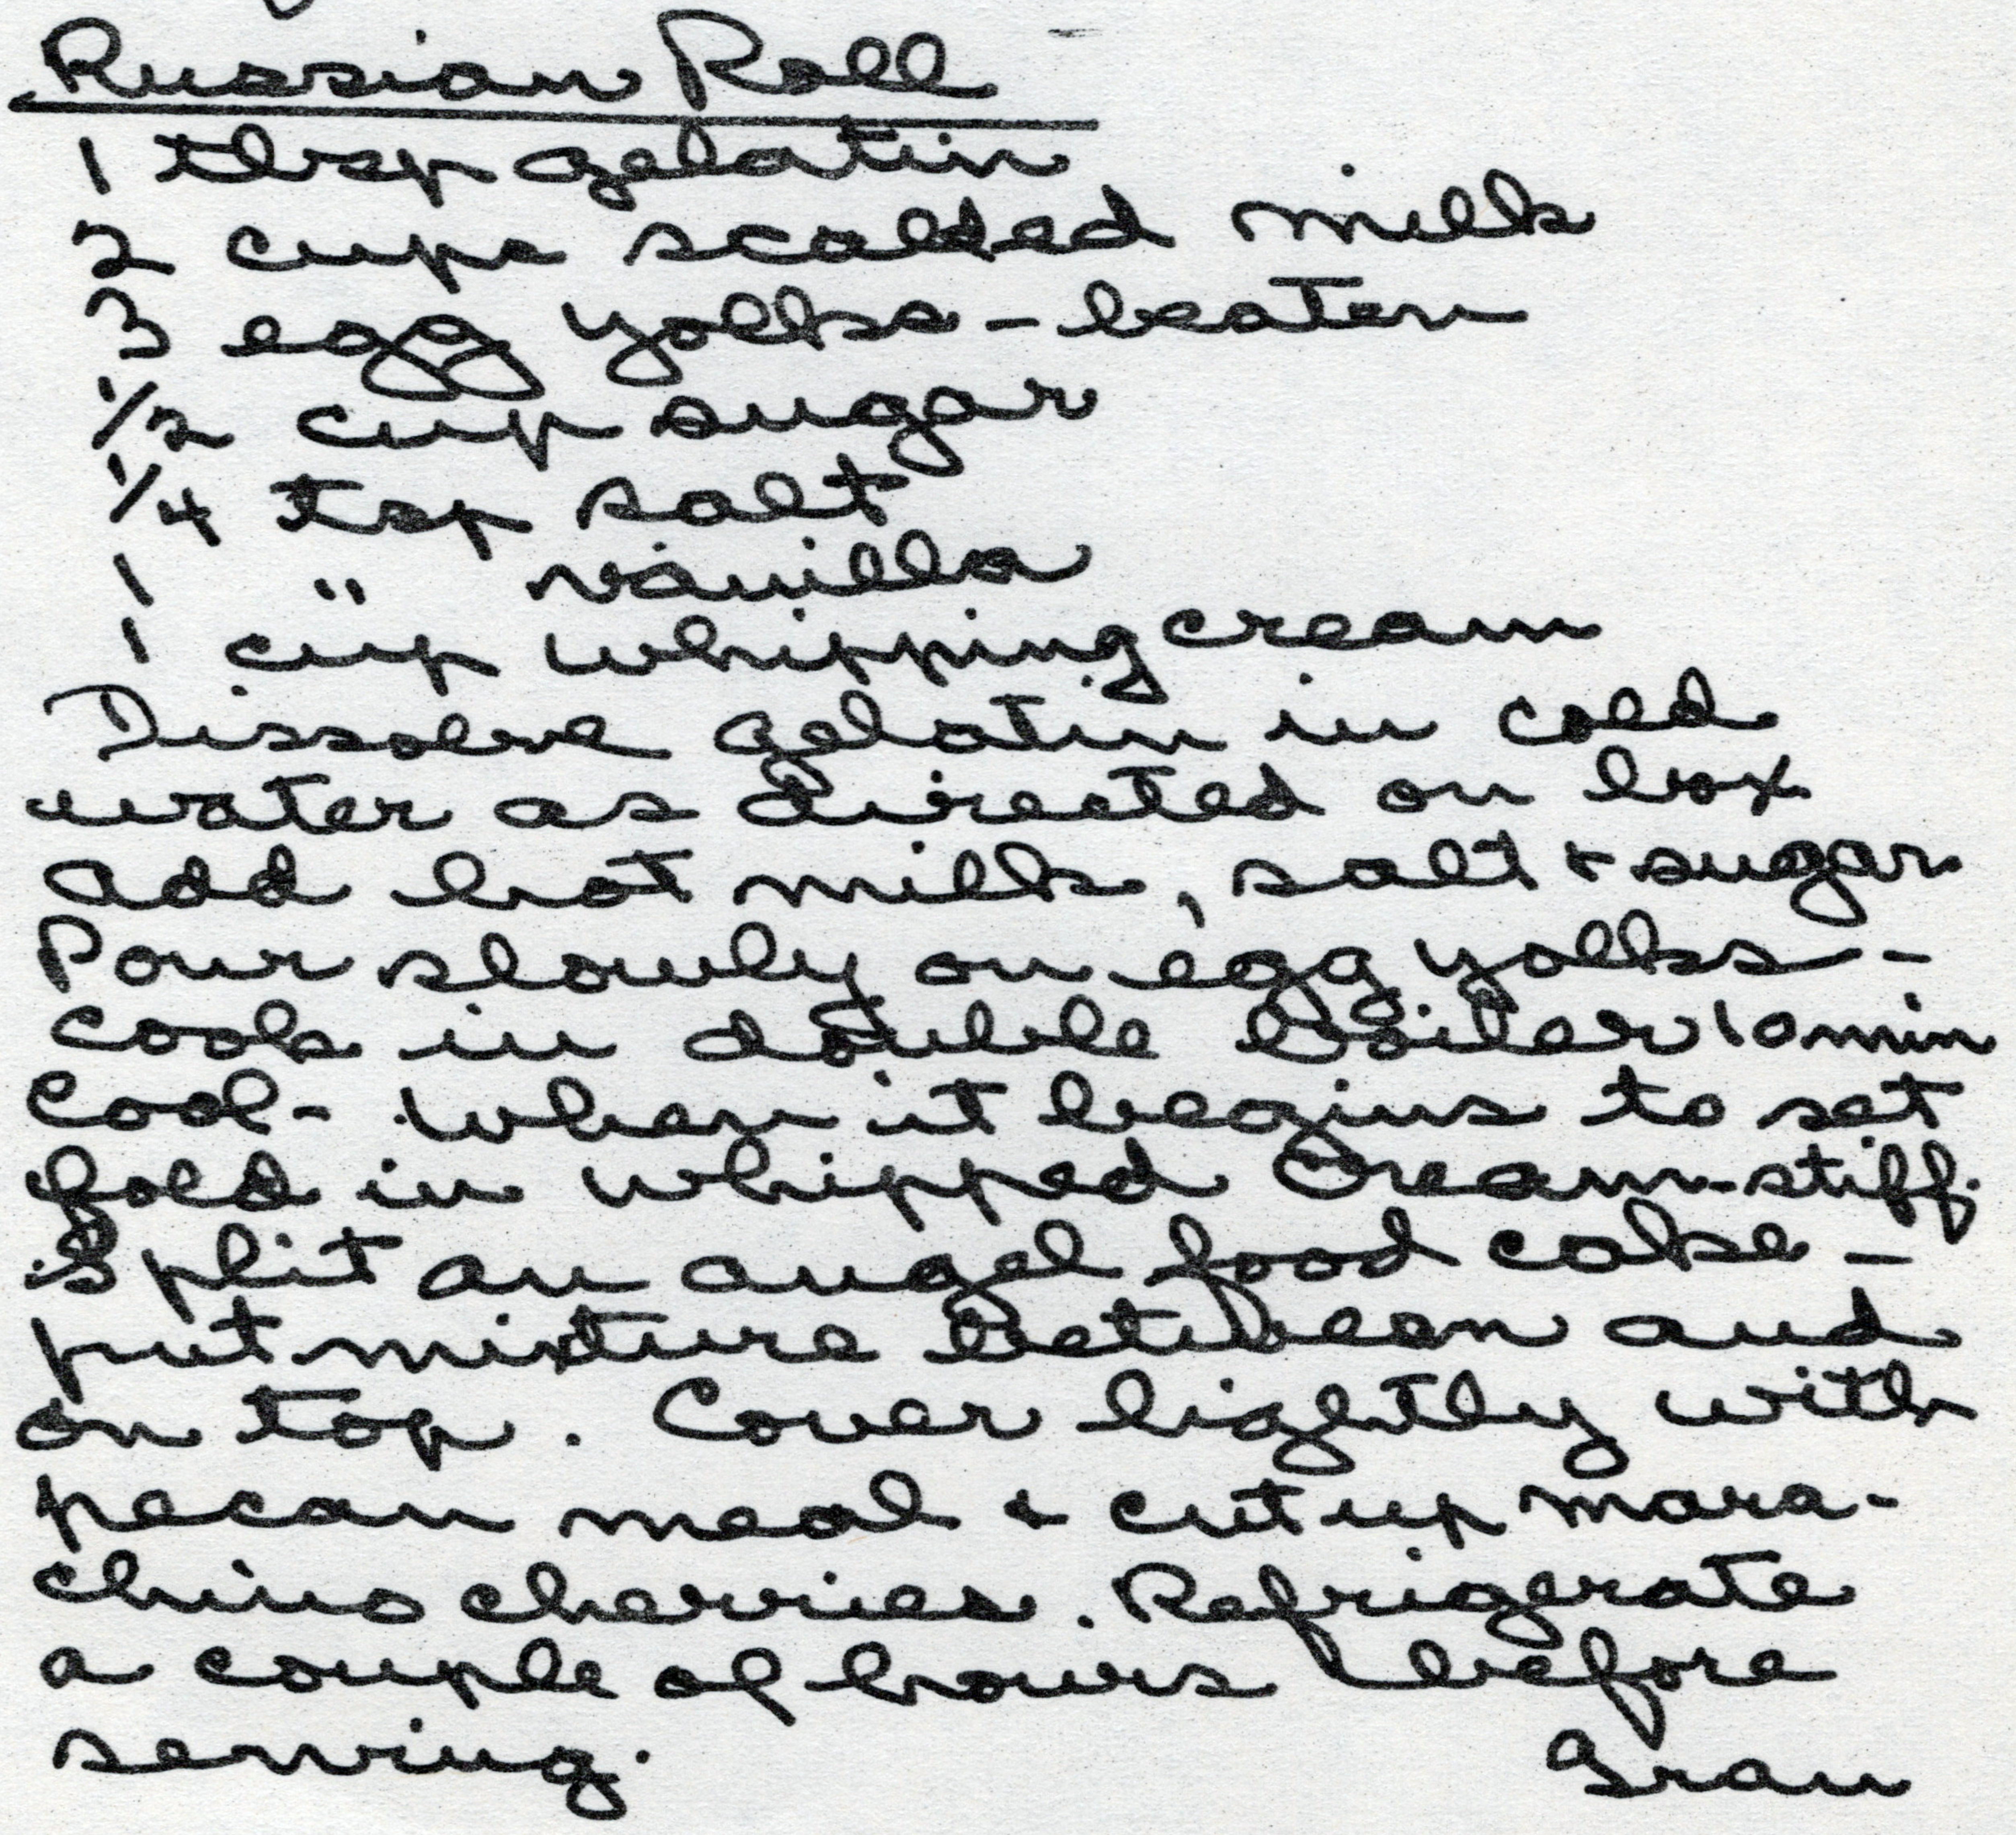 Russian Roll
1 tbsp gelatin
2 cups scalded milk
3 egg yolks - beaten
1/2 cup sugar
1/4 tsp salt
1 " vanilla
1 cup whipping cream
Dissolve gelatin in cold
water as directed on box
Add hot milk, salt + sugar
Pour slowly on egg yolks -
Cook in double boiler 10 min
Cool - When it begins to set
fold in whipped cream-stiff.
Split an angel food cake -
put mixture between and
on top. Cover lightly with
pecan meal + cut up mara-
chino cherries. Refrigerate
a couple of hours before
serving.
Gran